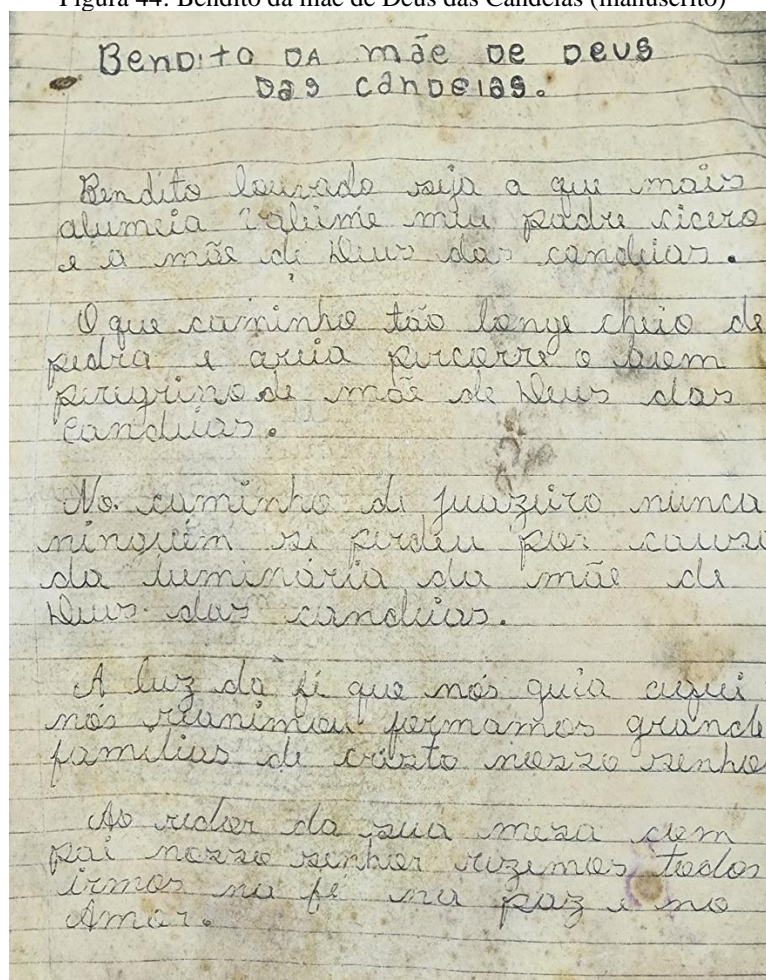 Figura 44: Bendito da mãe de Deus das Candeias (manuscrito)
Bendito da mãe de Deus
das candeias.
Bendito louvado seja a que mais
alumeia valeime meu padre cicero
e a mãe de Deus das candeias.
O que caminho tão longe cheio de
pedra e areia percorre o buem
peregrino de mãe de Deus das
Candeias.
No caminho de juazeiro nunca
ninguém se perdeu por causa
da luminária da mãe de
Deus das candeias.
A luz da fé que nós guia aqui
nós reunimou formamos grande
famílias de cristo nosso senhor
Ao redor da sua mesa com
pai nosso senhor rezemos todos
irmos na fé na paz e no
Amor.